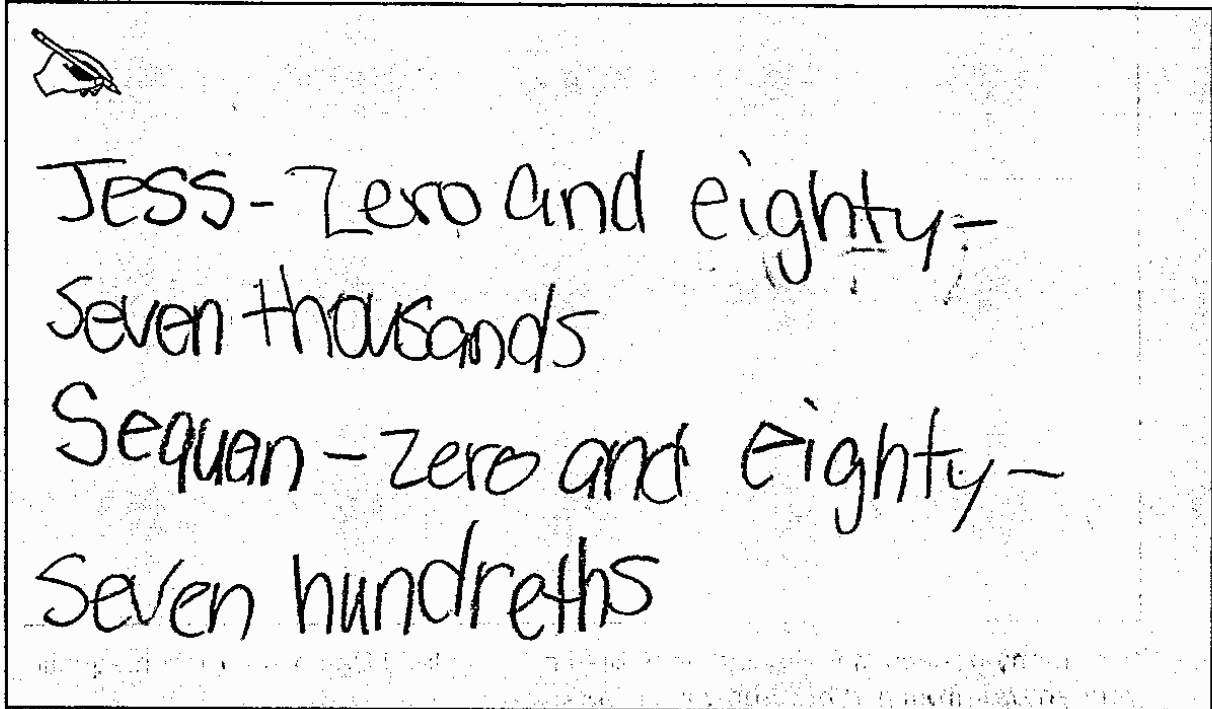 Jess - Zero and eighty-
Seven thousands
Sequan - zero and eighty-
Seven hundreths